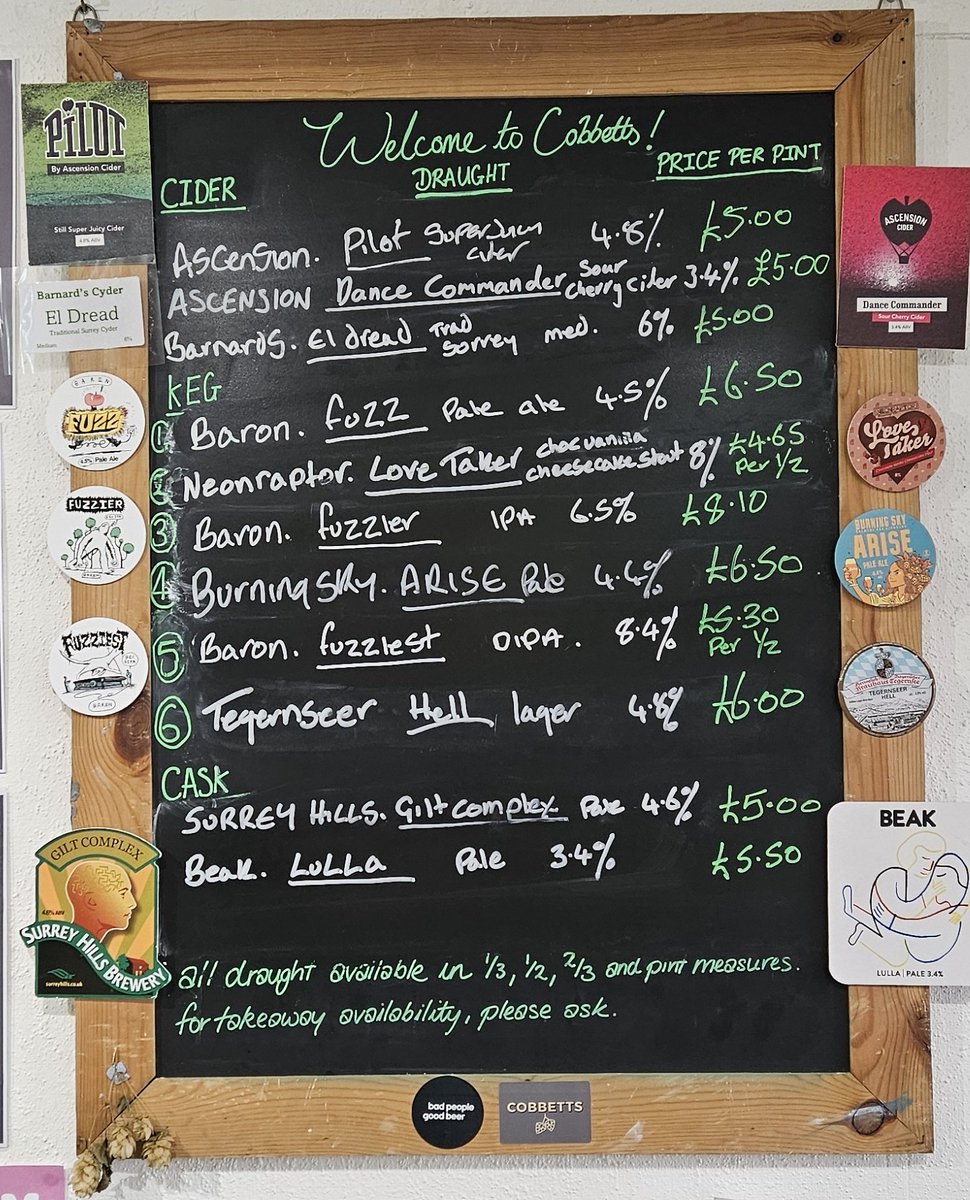 Welcome to Cobbetts!
DRAUGHT
PRICE PER PINT
CIDER
Ascension. Pilot Superjuicy cider 4.8% £5.00
ASCENSION Dance Commander Sour cherry cider 3.4% £5.00
Barnards. El dread Trad Sorrey med. 6% £5.00
KEG
1 Baron. fuzz Pale ale 4.5% £6.50
2 Neonraptor. Love Taker choc vanilla cheesecake stout 8% £4.65 Per 1/2
3 Baron. fuzzier IPA 6.5% £8.10
4 Burning Sky. ARISE Pale 4.4% £6.50
5 Baron. fuzziest DIPA. 8.4% £5.30 Per 1/2
6 Tegernseer Hell lager 4.8% £6.00
CASK
SURREY HILLS. Gilt complex Pale 4.6% £5.00
Beak. LULLA Pale 3.4% £5.50
all draught available in 1/3, 1/2, 2/3 and pint measures.
for takeaway availability, please ask.
PILOT
By Ascension Cider
Still Super Juicy Cider
4.8% ABV
Barnard's Cyder
El Dread
Traditional Surrey Cyder
Medium 6%
BARON
FUZZ
4.5% Pale Ale
FUZZIER
BARON
FUZZIEST
BARON
GILT COMPLEX
SURREY HILLS BREWERY
surreyhills.co.uk
ASCENSION
CIDER
Dance Commander
Sour Cherry Cider
3.4% ABV
Love Taker
8%
BURNING SKY
ARISE
PALE ALE
4.4%
TEGERNSEER
HELL
BEAK
LULLA | PALE 3.4%
bad people
good beer
COBBETTS